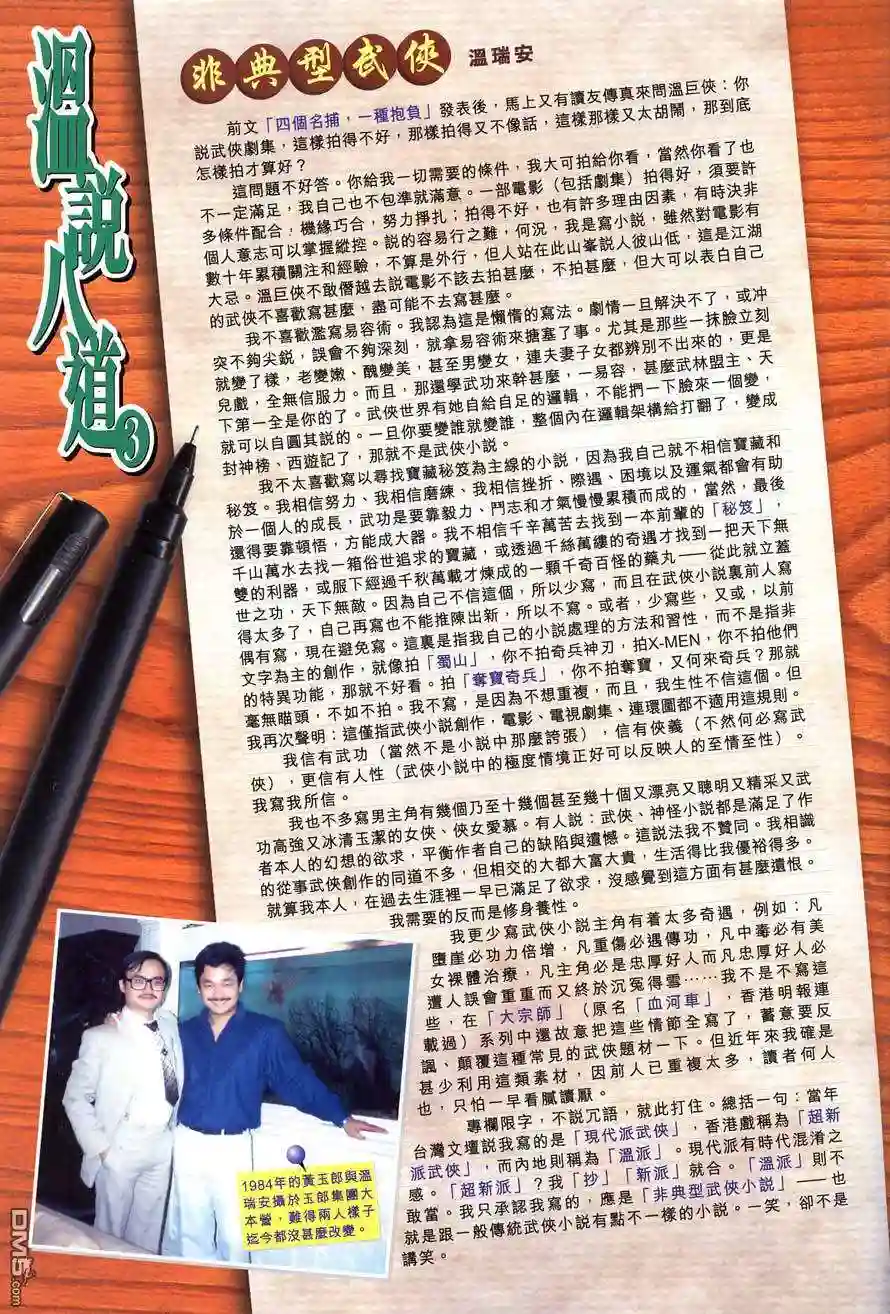 溫說八道
3
非典型武俠
溫瑞安
前文「四個名捕，一種抱負」發表後，馬上又有讀友傳真來問溫巨俠：你
說武俠劇集，這樣拍得不好，那樣拍得又不像話，這樣那樣又太胡鬧，那到底
怎樣拍才算好？
這問題不好答。你給我一切需要的條件，我大可拍給你看，當然你看了也
不一定滿足，我自己也不包準就滿意。一部電影（包括劇集）拍得好，須要許
多條件配合，機緣巧合，努力爭扎；拍得不好，也有許多理由因素，有時決非
個人意志可以掌握縱控。說的容易行之難，何況，我是寫小說，雖然對電影有
數十年累積關注和經驗，不算是外行，但人站在此山峯說人彼山低，這是江湖
大忌。溫巨俠不敢僭越去說電影不該去拍甚麼，不拍甚麼，但大可以表白自己
的武俠不喜歡寫甚麼，盡可能不去寫甚麼。
我不喜歡濫寫易容術。我認為這是懶惰的寫法。劇情一旦解決不了，或冲
突不夠尖銳，誤會不夠深刻，就拿易容術來搪塞了事。尤其是那些一抹臉立刻
就變了樣，老變嫩、醜變美，甚至男變女，連夫妻子女都辨別不出來的，更是
兒戲，全無信服力。而且，那還學武功來幹甚麼，一易容，甚麼武林盟主、天
下第一全是你的了。武俠世界有她自給自足的邏輯，不能捫一下臉來一個變，
就可以自圓其說的。一旦你要變誰就變誰，整個內在邏輯架構給打翻了，變成
封神榜、西遊記了，那就不是武俠小說。
我不太喜歡寫以尋找寶藏秘笈為主線的小說，因為我自己就不相信寶藏和
秘笈。我相信努力、我相信磨練、我相信挫折、際遇、困境以及運氣都會有助
於一個人的成長，武功是要靠毅力、鬥志和才氣慢慢累積而成的，當然，最後
還得要靠頓悟，方能成大器。我不相信千辛萬苦去找到一本前輩的「秘笈」，
千山萬水去找一箱俗世追求的寶藏，或透過千絲萬縷的奇遇才找到一把天下無
雙的利器，或服下經過千秋萬載才煉成的一顆千奇百怪的藥丸——從此就立蓋
世之功，天下無敵。因為自己不信這個，所以少寫，而且在武俠小說裏前人寫
得太多了，自己再寫也不能推陳出新，所以不寫。或者，少寫些，又或，以前
偶有寫，現在避免寫。這裏是指我自己的小說處理的方法和習性，而不是指非
文字為主的創作，就像拍「蜀山」，你不拍奇兵神刃，拍X-MEN，你不拍他們
的特異功能，那就不好看。拍「奪寶奇兵」，你不拍奪寶，又何來奇兵？那就
毫無瞄頭，不如不拍。我不寫，是因為不想重複，而且，我生性不信這個。但
我再次聲明：這僅指武俠小說創作，電影、電視劇集、連環圖都不適用這規則。
我信有武功（當然不是小說中那麼誇張），信有俠義（不然何必寫武
俠），更信有人性（武俠小說中的極度情境正好可以反映人的至情至性）。
我寫我所信。
我也不多寫男主角有幾個乃至十幾個甚至幾十個又漂亮又聰明又精采又武
功高強又冰清玉潔的女俠、俠女愛慕。有人說：武俠、神怪小說都是滿足了作
者本人的幻想的欲求，平衡作者自己的缺陷與遺憾。這說法我不贊同。我相識
的從事武俠創作的同道不多，但相交的大都大富大貴，生活得比我優裕得多。
就算我本人，在過去生涯裡一早已滿足了欲求，沒感覺到這方面有甚麼遺恨。
我需要的反而是修身養性。
我更少寫武俠小說主角有着太多奇遇，例如：凡
墮崖必功力倍增，凡重傷必遇傳功，凡中毒必有美
女裸體治療，凡主角必是忠厚好人而凡忠厚好人必
遭人誤會重重而又終於沉冤得雪……我不是不寫這
些，在「大宗師」（原名「血河車」，香港明報連
載過）系列中還故意把這些情節全寫了，蓄意要反
諷、顛覆這種常見的武俠題材一下。但近年來我確是
甚少利用這類素材，因前人已重複太多，讀者何人
也，只怕一早看膩讀厭。
專欄限字，不說冗語，就此打住。總括一句：當年
台灣文壇說我寫的是「現代派武俠」，香港戲稱為「超新
派武俠」，而內地則稱為「溫派」。現代派有時代混淆之
感。「超新派」？我「抄」「新派」就合。「溫派」則不
敢當。我只承認我寫的，應是「非典型武俠小說」——也
就是跟一般傳統武俠小說有點不一樣的小說。一笑，卻不是
講笑。
1984年的黃玉郎與溫
瑞安攝於玉郎集團大
本營，難得兩人樣子
迄今都沒甚麼改變。
DM5.com